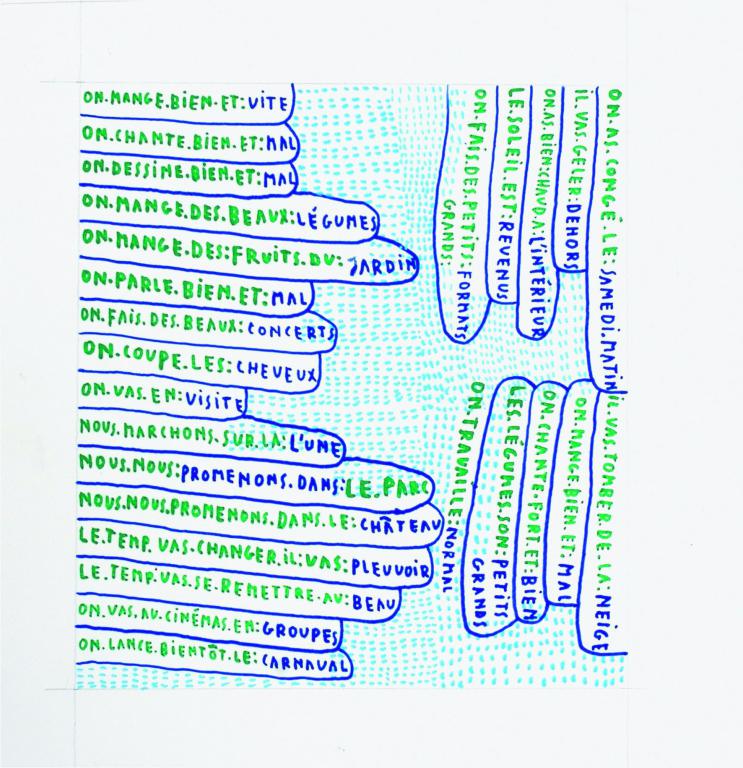 ON.MANGE.BIEN.ET:VITE
ON.CHANTE.BIEN.ET:MAL
ON.DESSINE.BIEN.ET:MAL
ON.MANGE.DES.BEAUX:LÉGUMES
ON.MANGE.DES:FRUITS.DU:JARDIN
ON.PARLE.BIEN.ET:MAL
ON.FAIS.DES.BEAUX:CONCERTS
ON.COUPE.LES:CHEVEUX
ON.VAS.EN:VISITE
NOUS.MARCHONS.SUR.LA:L'UNE
NOUS.NOUS:PROMENONS.DANS:LE.PARC
NOUS.NOUS.PROMENONS.DANS.LE:CHÂTEAU
LE.TEMP.VAS.CHANGER.IL:VAS:PLEUVOIR
LE.TEMP.VAS.SE.REMETTRE.AU:BEAU
ON.VAS.AU.CINÉMAS.EN:GROUPES
ON.LANCE.BIENTÔT.LE:CARNAVAL
ON.AS.CONGÉ.LE:SAMEDI.MATIN
IL.VAS.GELER:DEHORS
ON.AS.BIEN:CHAUD.A:L'INTÉRIEUR
LE.SOLEIL.EST:REVENUS
ON.FAIS.DES.PETITS:FORMATS
GRANDS:
IL.VAS.TOMBER.DE.LA:NEIGE
ON.MANGE.BIEN.ET:MAL
ON.CHANTE.FORT.ET:BIEN
LES.LÉGUMES.SON:PETITS
GRANDS
ON.TRAVAILLE:NORMAL